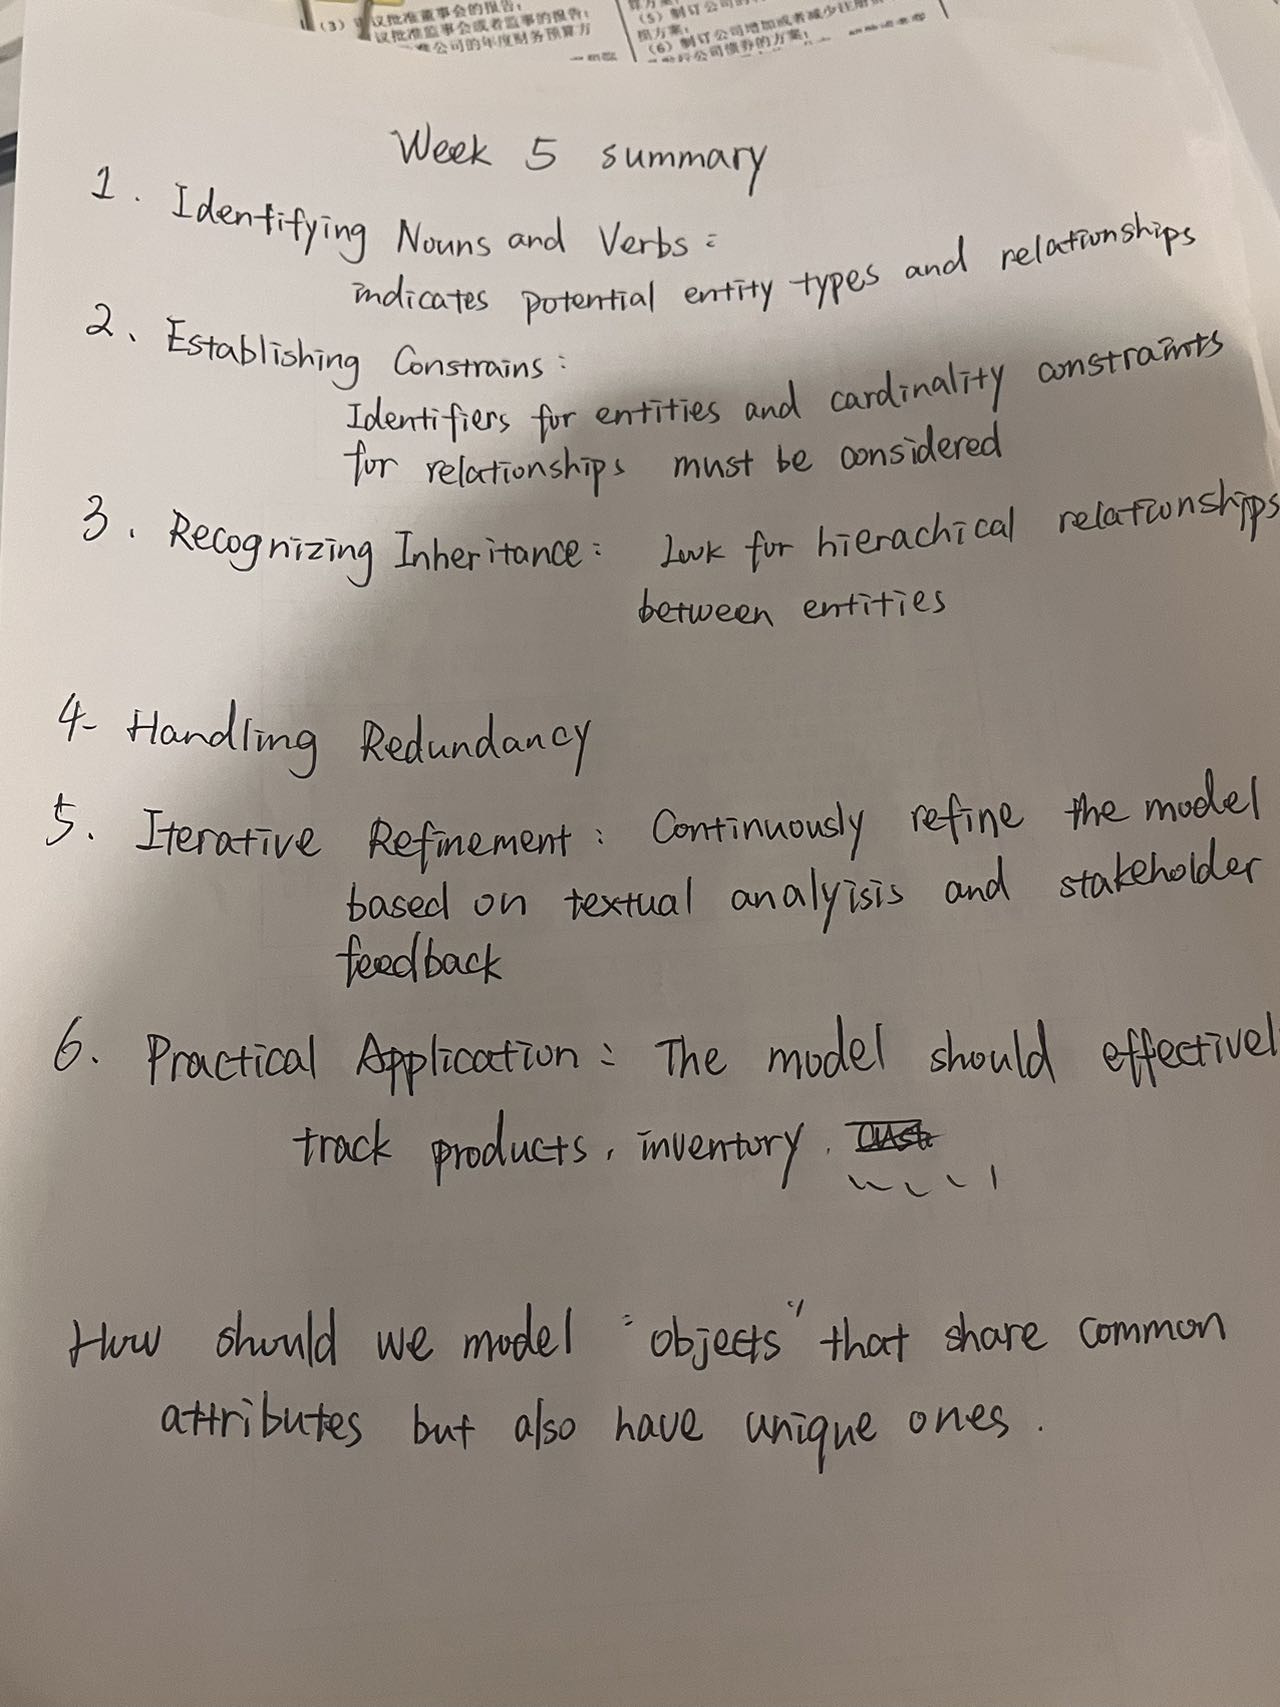 (3)
议批准董事会的报告;
议批准监事会或者监事的报告;
公司的年度财务预算方
(5) 制订公司的
损方案;
(6) 制订公司增加或者减少注册
发行公司债券的方案;
Week 5 summary
1. Identifying Nouns and Verbs:
indicates potential entity types and relationships
2、Establishing Constrains:
Identifiers for entities and cardinality constraints
for relationships must be considered
3. Recognizing Inheritance: Look for hierachical relationships
between entities
4- Handling Redundancy
5. Iterative Refinement: Continuously refine the model
based on textual analyisis and stakeholder
feedback
6. Practical Application: The model should effectivel
track products, inventory.
How should we model "objects" that share common
attributes but also have unique ones.